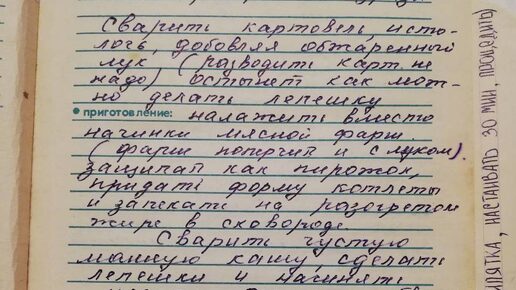 Сварить картовель, исто-
лочь, добовляя обжаренный
лук (разводить карт. не
надо) остынет как мож-
но делать лепешку
• приготовление: наложить вместо
начинки мясной фарш
(фарш потрчит и с луком).
защипат как пирожок,
придать форму котлеты
и запекать на разогретом
жире в сковороде.
Сварить густую
манную кашу, сделать
лепешки и начинять
ИПЯТКА, НАСТАИВАТЬ 30 МИН, ПРОЦЕДИТЬ)